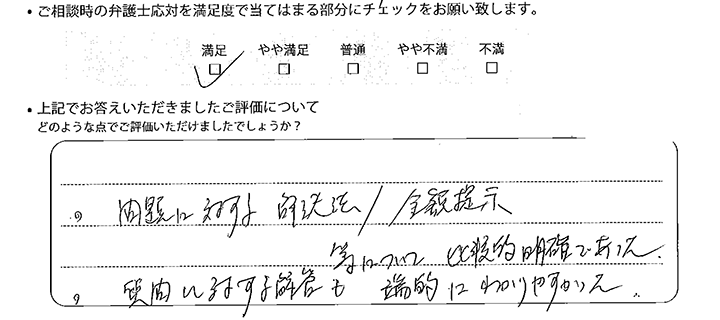 ・ご相談時の弁護士応対を満足度で当てはまる部分にチェックをお願い致します。
満足 やや満足 普通 やや不満 不満
□ □ □ □ □
・上記でお答えいただきましたご評価について
どのような点でご評価いただけましたでしょうか？
・問題に対する解決法/金額提示
等について比較的明確であった.
・質問に対する解答も 端的にわかりやすかった.